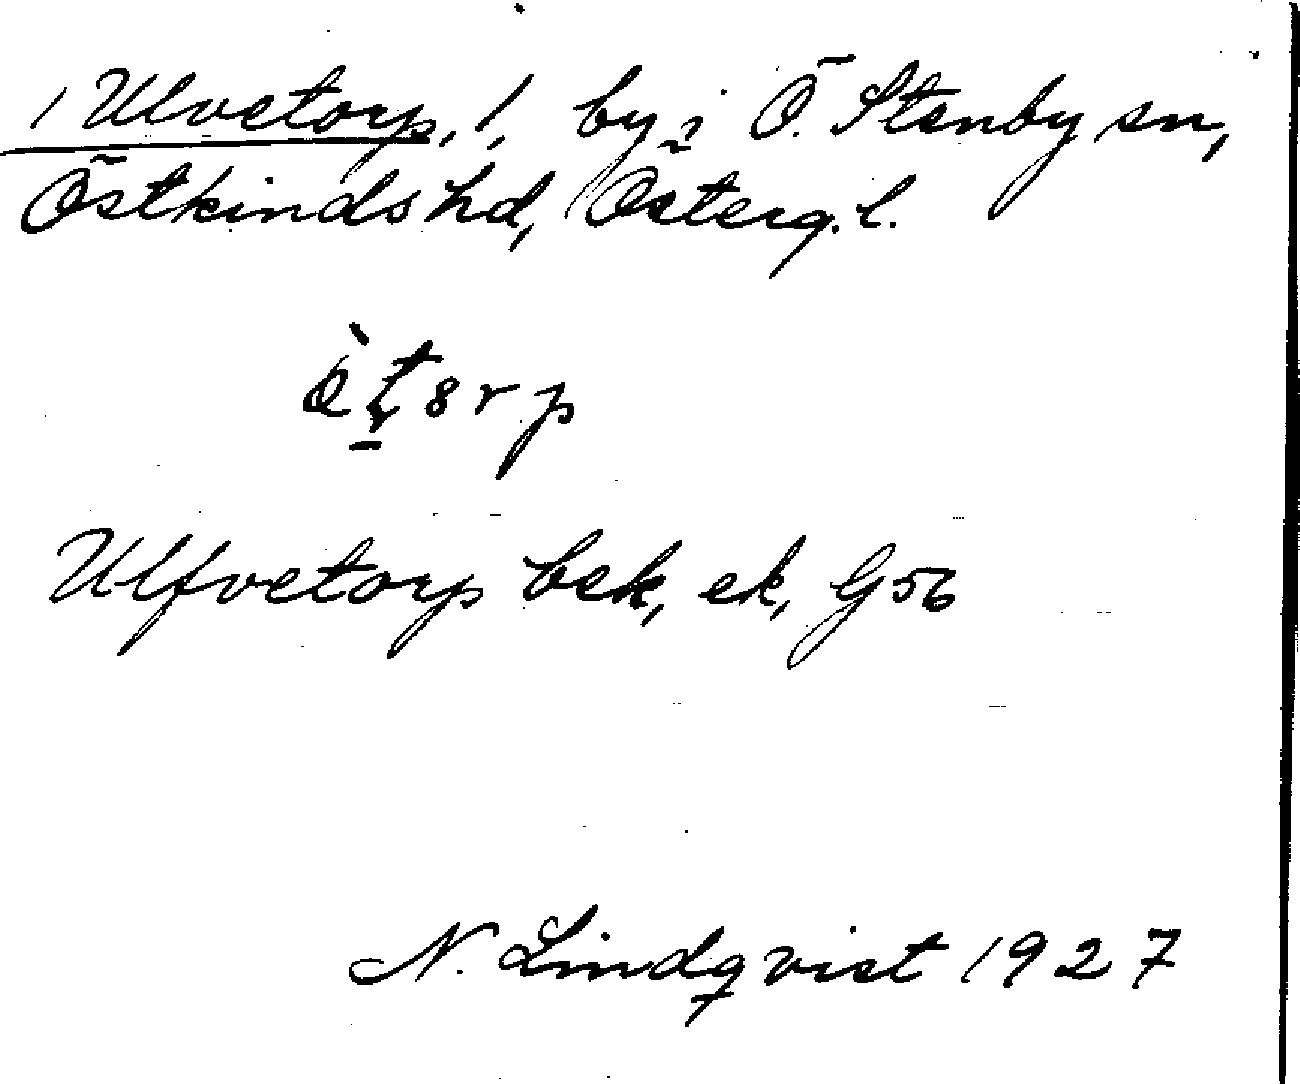 / Ulvetorp, /, by i Ö. Stenby sn,
Östkinds hd, Österg. l.
Ulfvetorp bsk, ek, G 56
N. Lindqvist 1927